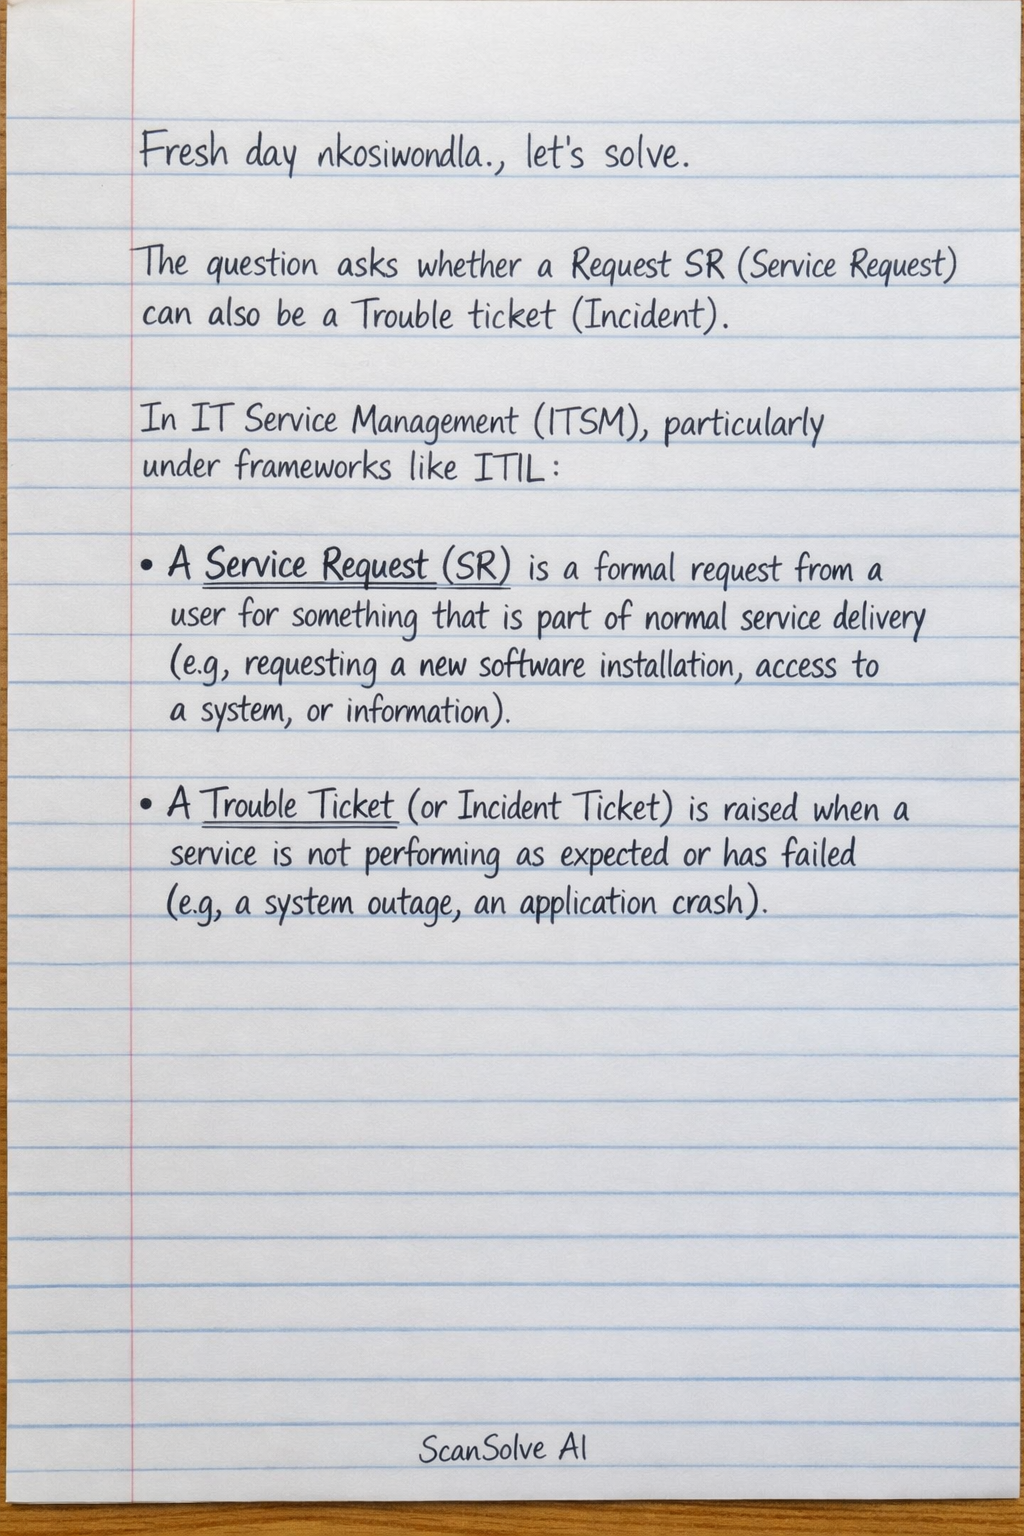 Fresh day nkosiwondla., let's solve.
The question asks whether a Request SR (Service Request)
can also be a Trouble ticket (Incident).
In IT Service Management (ITSM), particularly
under frameworks like ITIL:
• A Service Request (SR) is a formal request from a
user for something that is part of normal service delivery
(e.g, requesting a new software installation, access to
a system, or information).
• A Trouble Ticket (or Incident Ticket) is raised when a
service is not performing as expected or has failed
(e.g, a system outage, an application crash).
ScanSolve AI